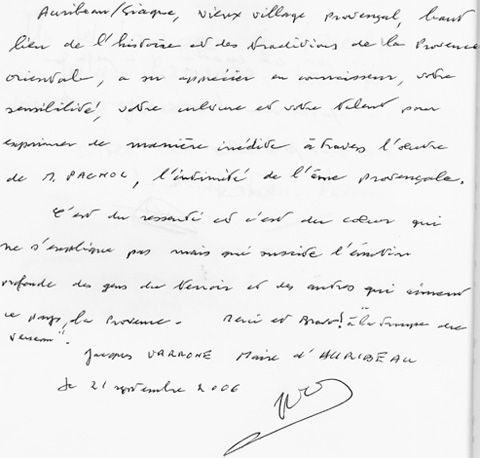 Auribeau/Siagne, vieux village provençal, haut
lieu de l'histoire et des traditions de la Provence
orientale, a su apprécier en connaisseur, votre
sensibilité, votre culture et votre talent pour
exprimer de manière inédite à travers l'œuvre
de M. PAGNOL, l'intimité de l'âme provençale.
C'est du ressenti et c'est du cœur qui
ne s'explique pas mais qui suscite l'émotion
profonde des gens du terroir et des autres qui aiment
ce pays, la Provence. Merci et Bravo! à "la troupe du
verseau".
Jacques VARRONE Maire d'AURIBEAU
le 21 septembre 2006